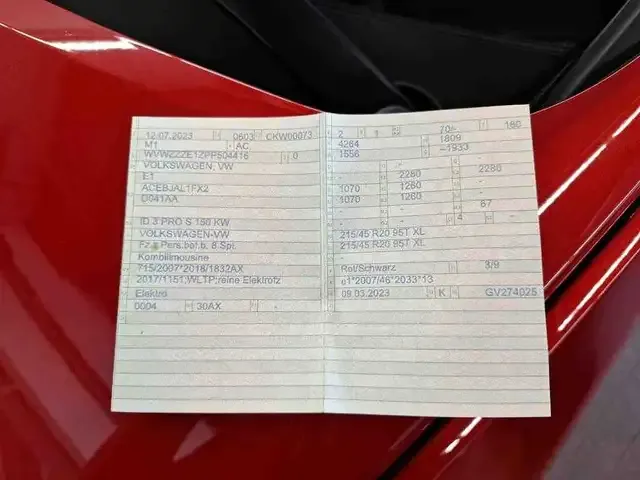 12.07.2023 0603 CKW00073
M1 AC
0
VOLKSWAGEN, VW
E1
ACEBJAL1FX2
D041AA
-
ID.3 PRO S 150 KW
VOLKSWAGEN-VW
Fz.z.Pers.bef.b. 8 Spl.
Kombilimousine
715/2007*2018/1832AX
2017/1151;WLTP;reine Elektrofz
Elektro
0004 30AX -
2 1 70/- 160
4264 1809
1556 –1933
- 2280 2280
1070 1260 -
1070 1260 -
- - - 67
- - 4 -
215/45 R20 95T XL
215/45 R20 95T XL
-
Rot/Schwarz 3/9
e1*2007/46*2033*13
09.03.2023 K GV274025